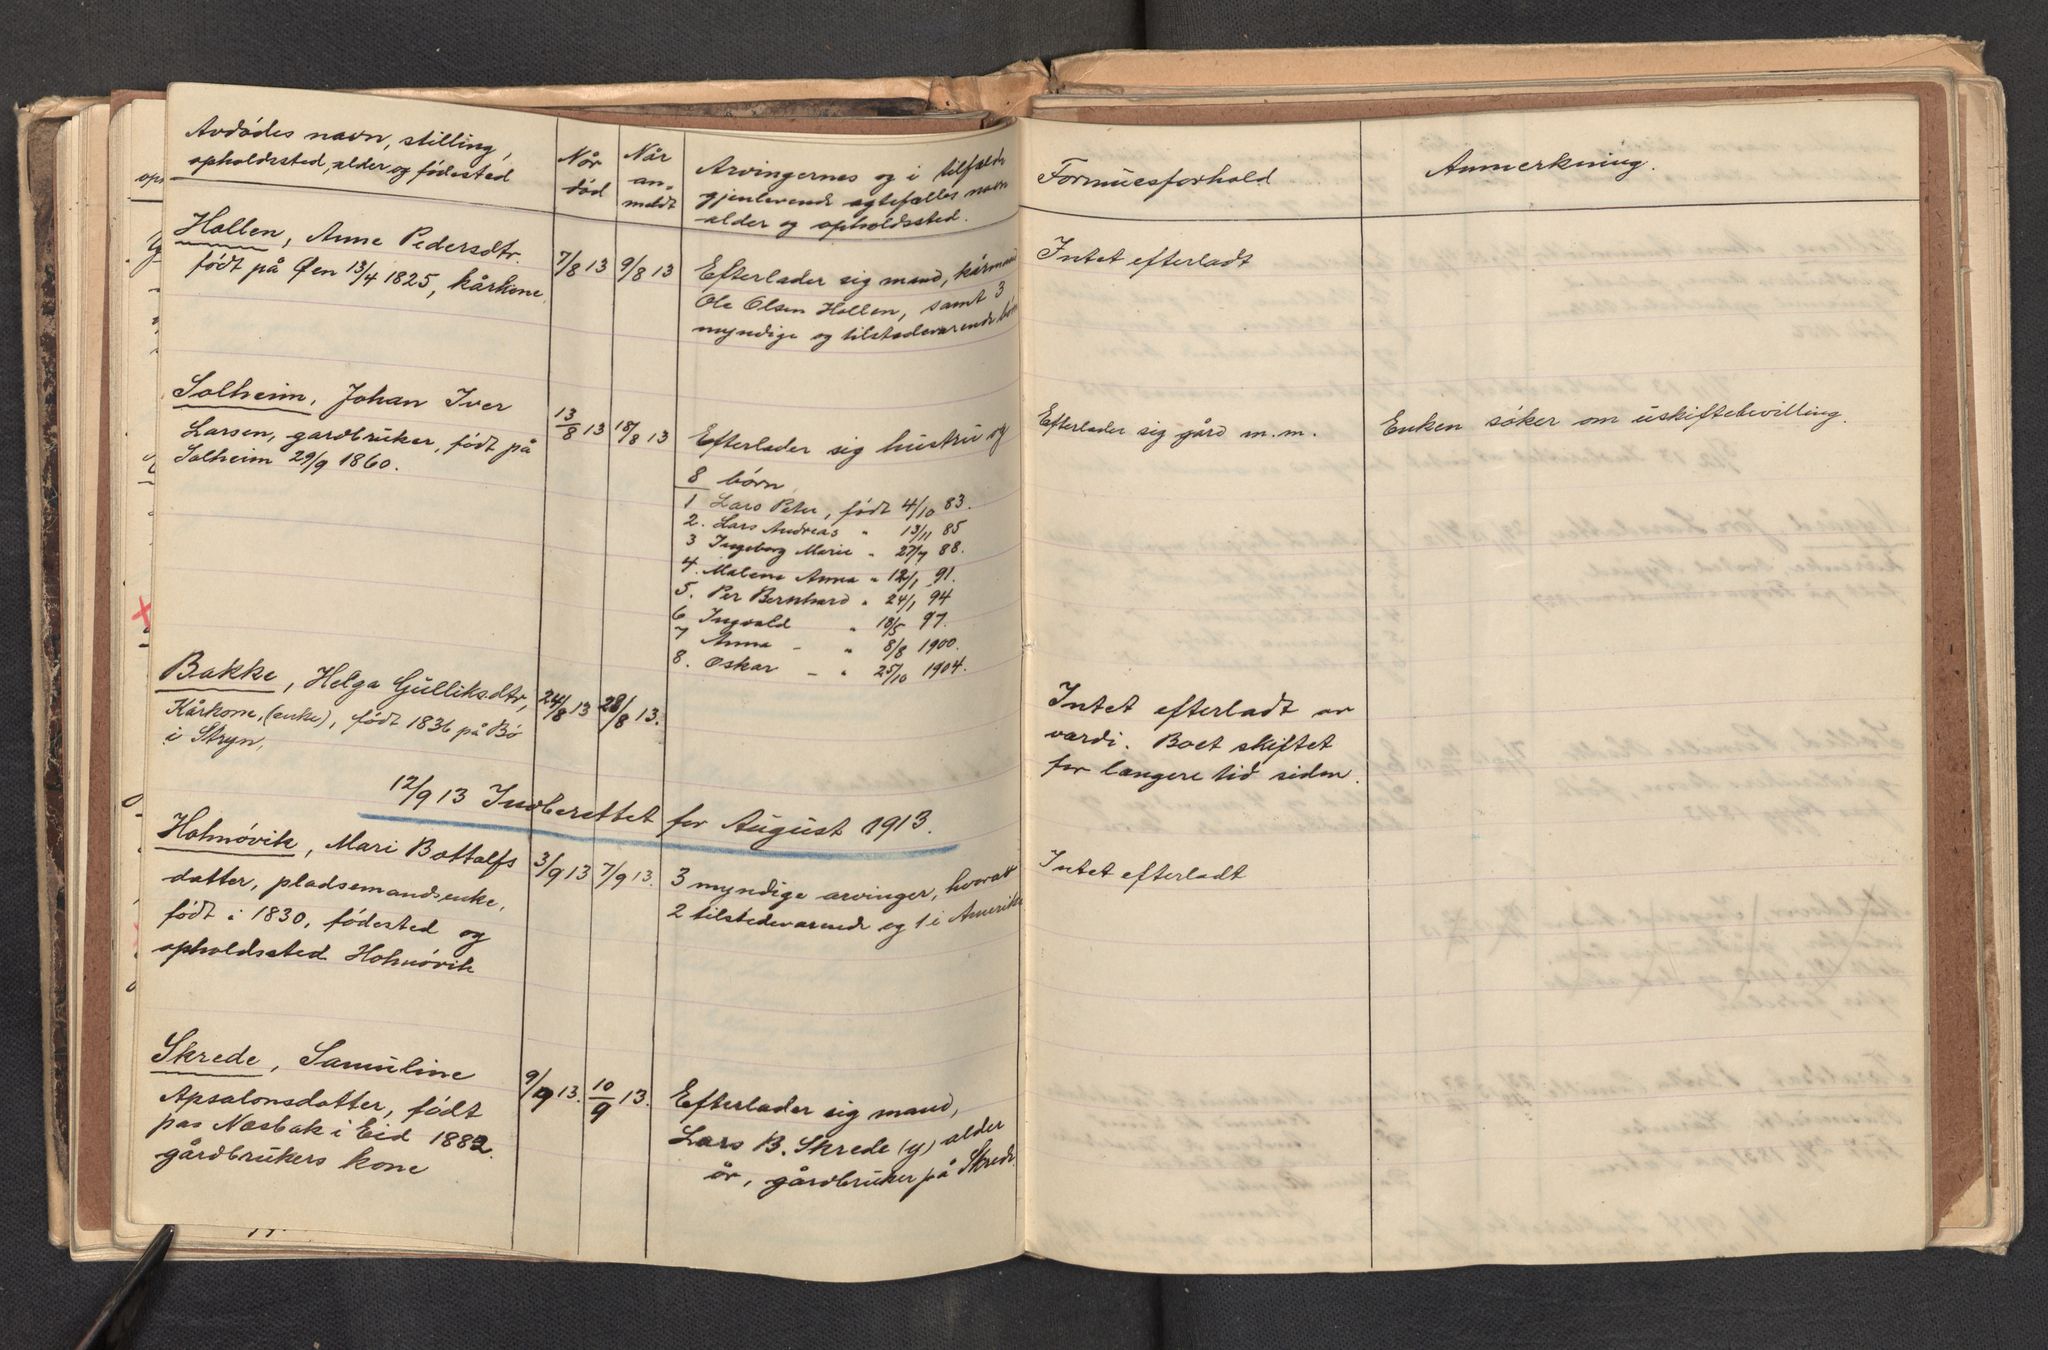 Avdødes navn, stilling,
opholdssted, alder og fødested
Når
død
Når
an-
meldt
Arvingernes og i tilfælde
gjenlevende ægtefælles navn
alder og opholdssted.
Formuesforhold
Anmerkning.
Hollen, Anne Pedersdtr.
født på Øen 13/4 1825, kårkone.
7/8 13
9/8 13
Efterlader sig mand, kårmand
Ole Olsen Hollen, samt 3
myndige og tilstedeværende børn
Intet efterladt
Solheim, Johan Iver
Larsen, gardbruker, født på
Solheim 29/9 1860.
13/8 13
18/8 13
Efterlader sig hustru og
8 børn
1 Lars Peter, født 4/10 83.
2. Lars Andreas " 13/11 85
3 Ingeborg Marie " 27/7 88.
4. Malene Anna " 12/1 91.
5. Per Bernhard " 24/1 94
6 Ingvald " 18/5 97.
7 Anna – " 8/8 1900.
8. Oskar – " 25/10 1904.
Efterlader sig gård m.m.
Enken søker om uskiftebevilling.
Bakke, Helga Gulliksdtr,
Kårkone, (enke), født 1836 på Bø
i Stryn.
24/8 13
28/8 13.
Intet efterladt av
værdi. Boet skiftet
for længere tid siden.
12/9 13 Indberettet for August 1913.
Holmøvik, Mari Bottolfs
datter, pladsemandsenke,
født i 1830, fødested og
opholdssted Holmøvik
3/9 13
7/9 13.
3 myndige arvinger, hvorav
2 tilstedeværende og 1 i Amerika
Intet efterladt
Skrede, Samuline
Apsalonsdatter, født
paa Næsbak i Eid 1882.
gårdbrukers kone
9/9 13.
10/9 13.
Efterlader sig mand,
Lars B. Skrede (y) alder
år, gårdbruker på Skrede